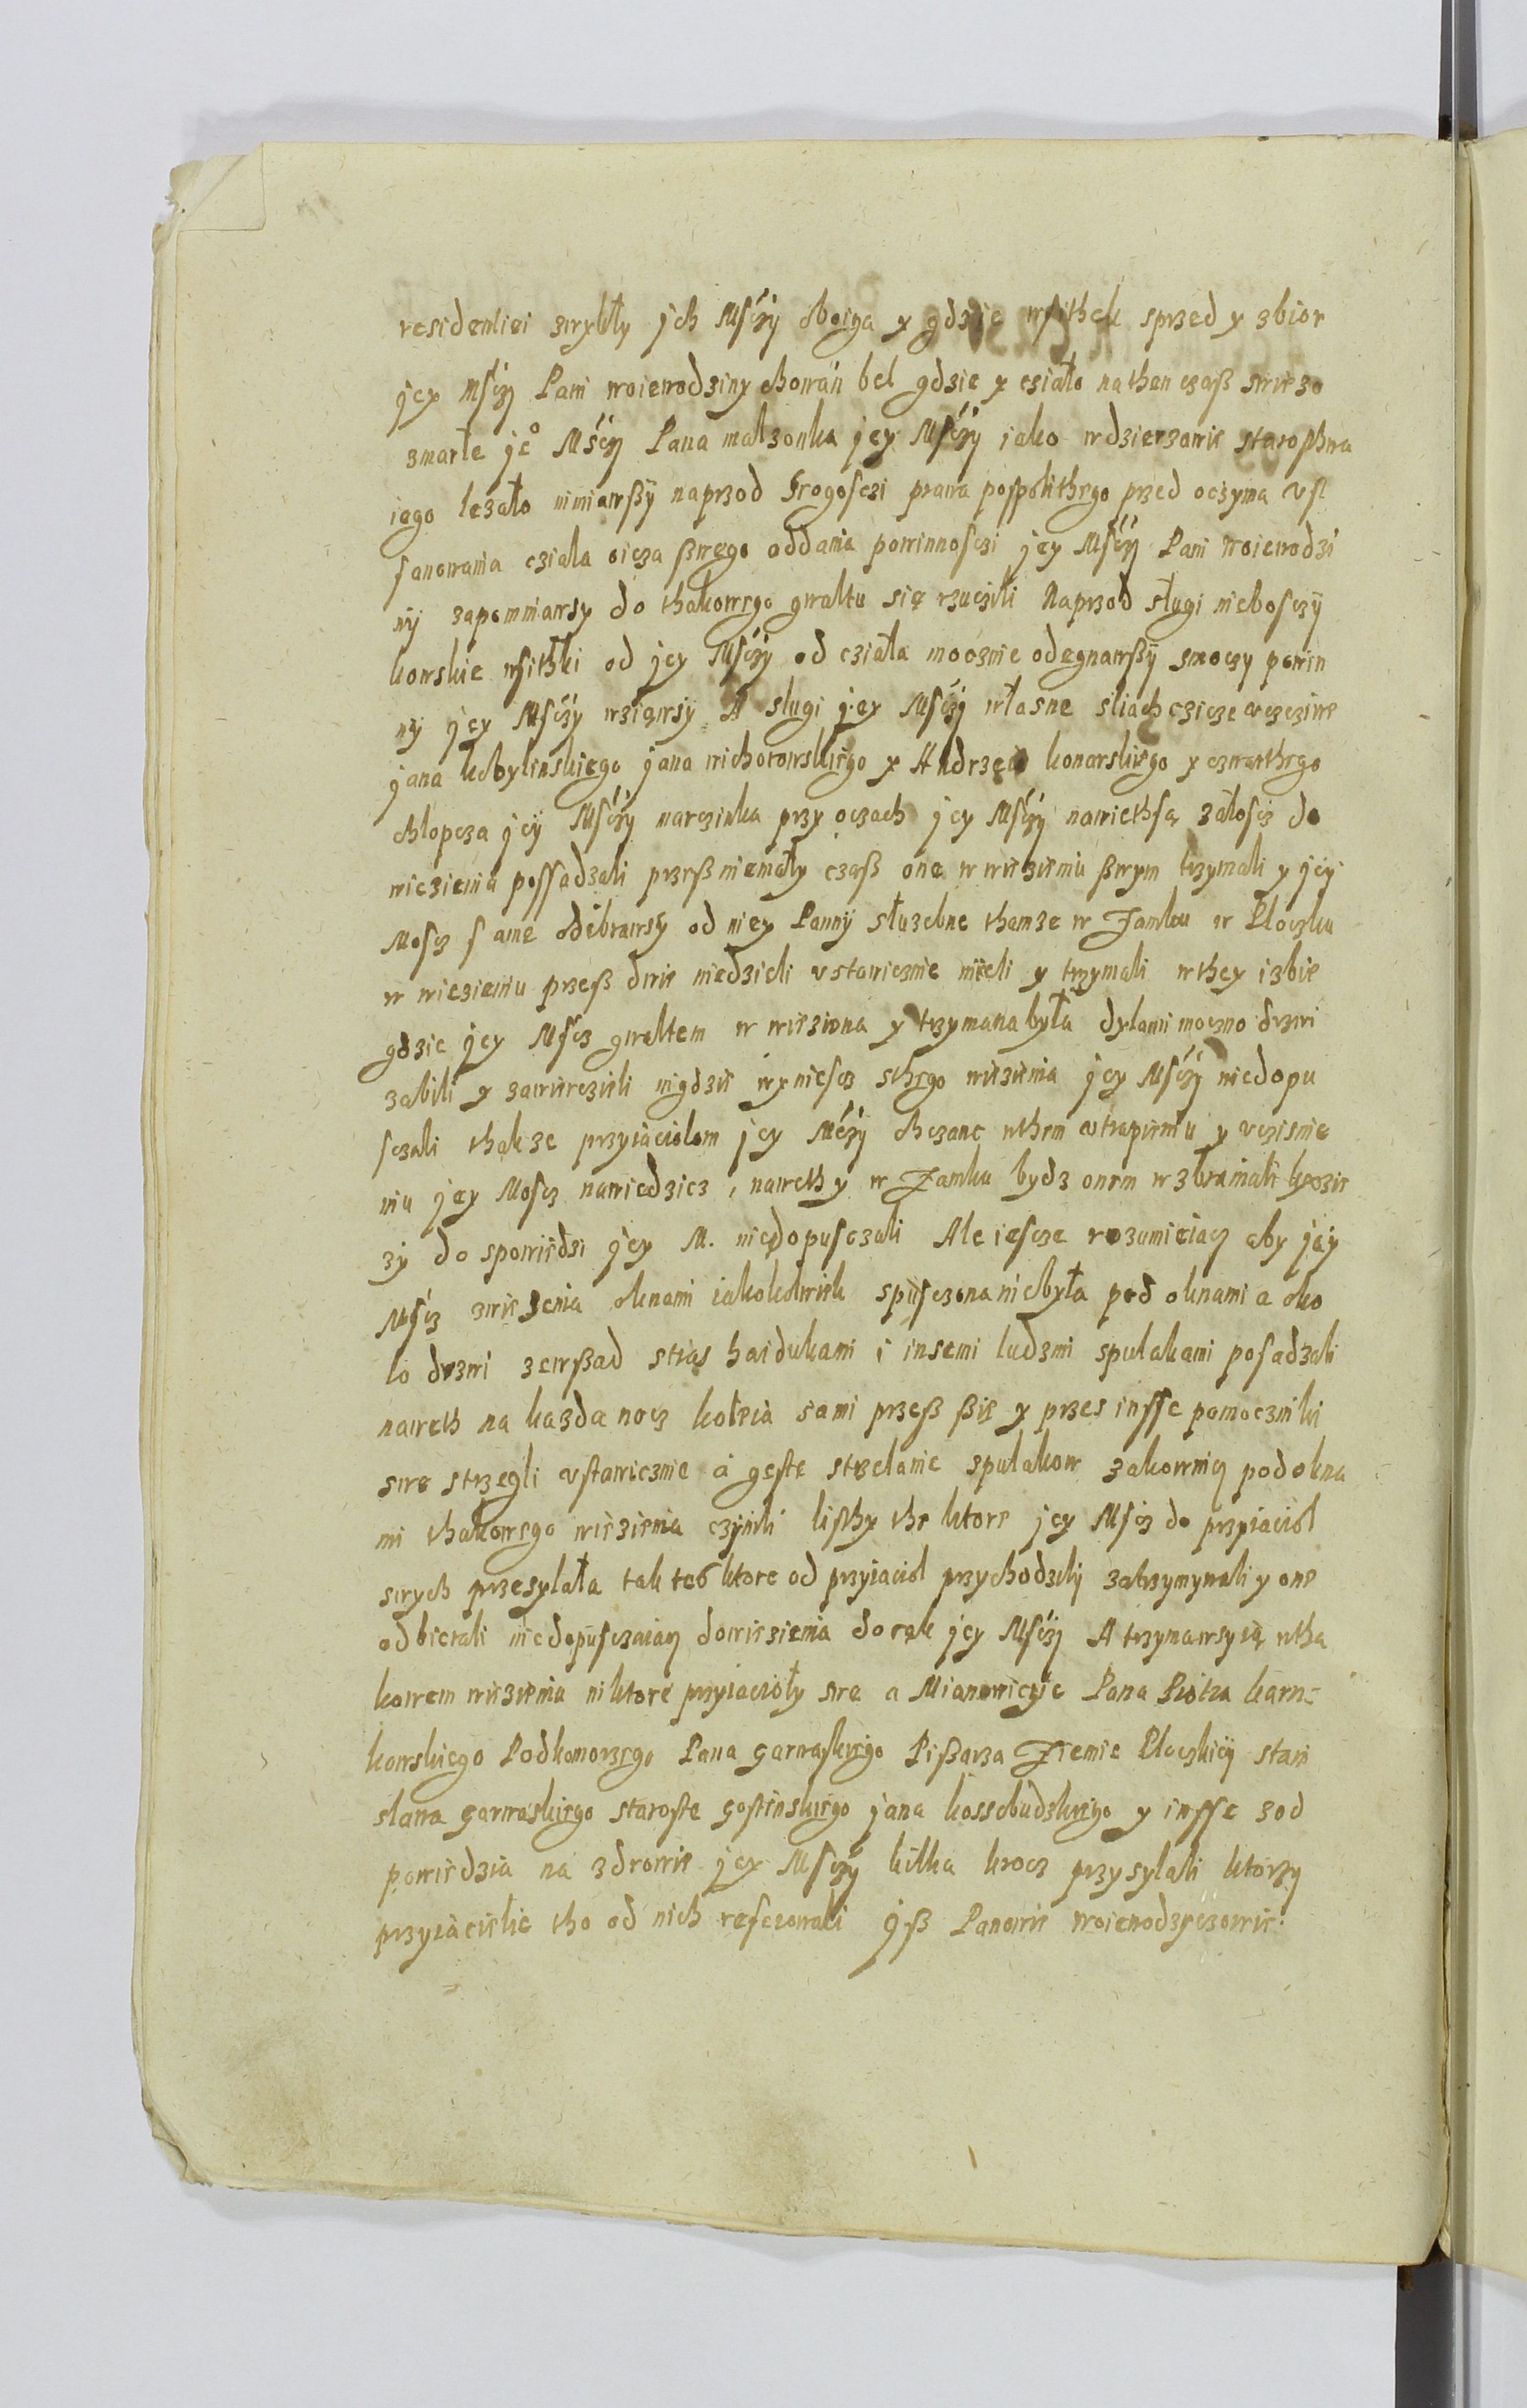 residentiei zwykły jch Mśczÿ oboiga y gdzie wsithek sprzed y zbior
jey Mśczÿ Pani woiewodziny chowán bel gdzie y cziało nathen czaß swiezo
zmarłe jeº Mśczÿ Pana malzonka jey Mśczÿ iako w dzierzawie starosthwa
iego lezało nimiawßÿ naprzod srogosczi prawa pospolithego przed oczyma usz
sanowania cziala oicza ßwego oddania powinnosczi jey Mśczÿ Pani Woiewodzi
nÿ zapomniawsy do thakowego gwaltu się rzuczili Naprzod sługi niebosczÿ
kowskie wsithki od jey Mśczÿ od cziała mocznie odegnawßÿ zmoczy powin
nÿ jey Mśczÿ wziąwsÿ A slugi jey Mśczÿ własne sliachczicze ucścziwe
jana kobylinskiego jana wichorowskiego y Andrzeia konarskiego y czwarthego
chłopcza jeÿ Mśczÿ marczinka przy oczach jey Mśczÿ nawiethsą załoscz do
wiezienia possadzali przeß niemały czaß one w wiezieniu ßwym trzymali y jeÿ
Moscz same odebrawsÿ od niey Pannÿ służebne thamze w Zamku w Płoczku
w wiezieniu przeß dwie niedzieli ustawicznie mieli y trzymali wthey izbie
gdzie jey Mscz gwaltem w wieziona y trzymana była dylami moczno drzwi
zabili y zawierczieli nigdzie wyniescz sthego wiezienia jey Mśczÿ niedopu
sczali thakze przyiaciolom jey Mśczÿ chczanc wthem utrapieniu y uczisnie
niu jey Moscz nawiedzicz, naweth y w Zamku bydz onem wzbraniali kxozie
zÿ do spowiedzi jey M. niedopusczali Ale iescze rozumieiacz aby jeÿ
Mścz zwiezenia oknami iakokolwiek spusczona niebyła pod oknami a oko
lo drzwi zewßad straz haidukami i insemi ludzmi spulakami posadzali
naweth na kazda nocz koleia sami przeß ßie y przes insse pomoczniki
swe strzegli ustawicznie a geste strzelanie spulakow zakownicz pod okna
mi thakowego wiezienia czÿnili listhy the ktore jey Mscz do przyiaciol
swych przesylała tak tez ktore od przyiaciol przychodzilÿ zatrzymywali y one
odbierali niedopusczaiacz dowiezienia do rąk jey Mśczÿ A trzymawsy ią wtha
kowem wiezieniu niktore przyiacioły swe a Mianowicyie Pana Piotra karn=
kowskiego Podkomorzego Pana garwaskiego Pißarza Ziemie Płoczkieÿ stani
slawa garwaskiego staroste gostinskiego jana kossobudzkiego y insse zod
powiedzia na zdrowie jey Mśczÿ kilka krocz przysylali ktorzy
przyiacielie tho od nich referowali jß Panowie woiewodziczowie